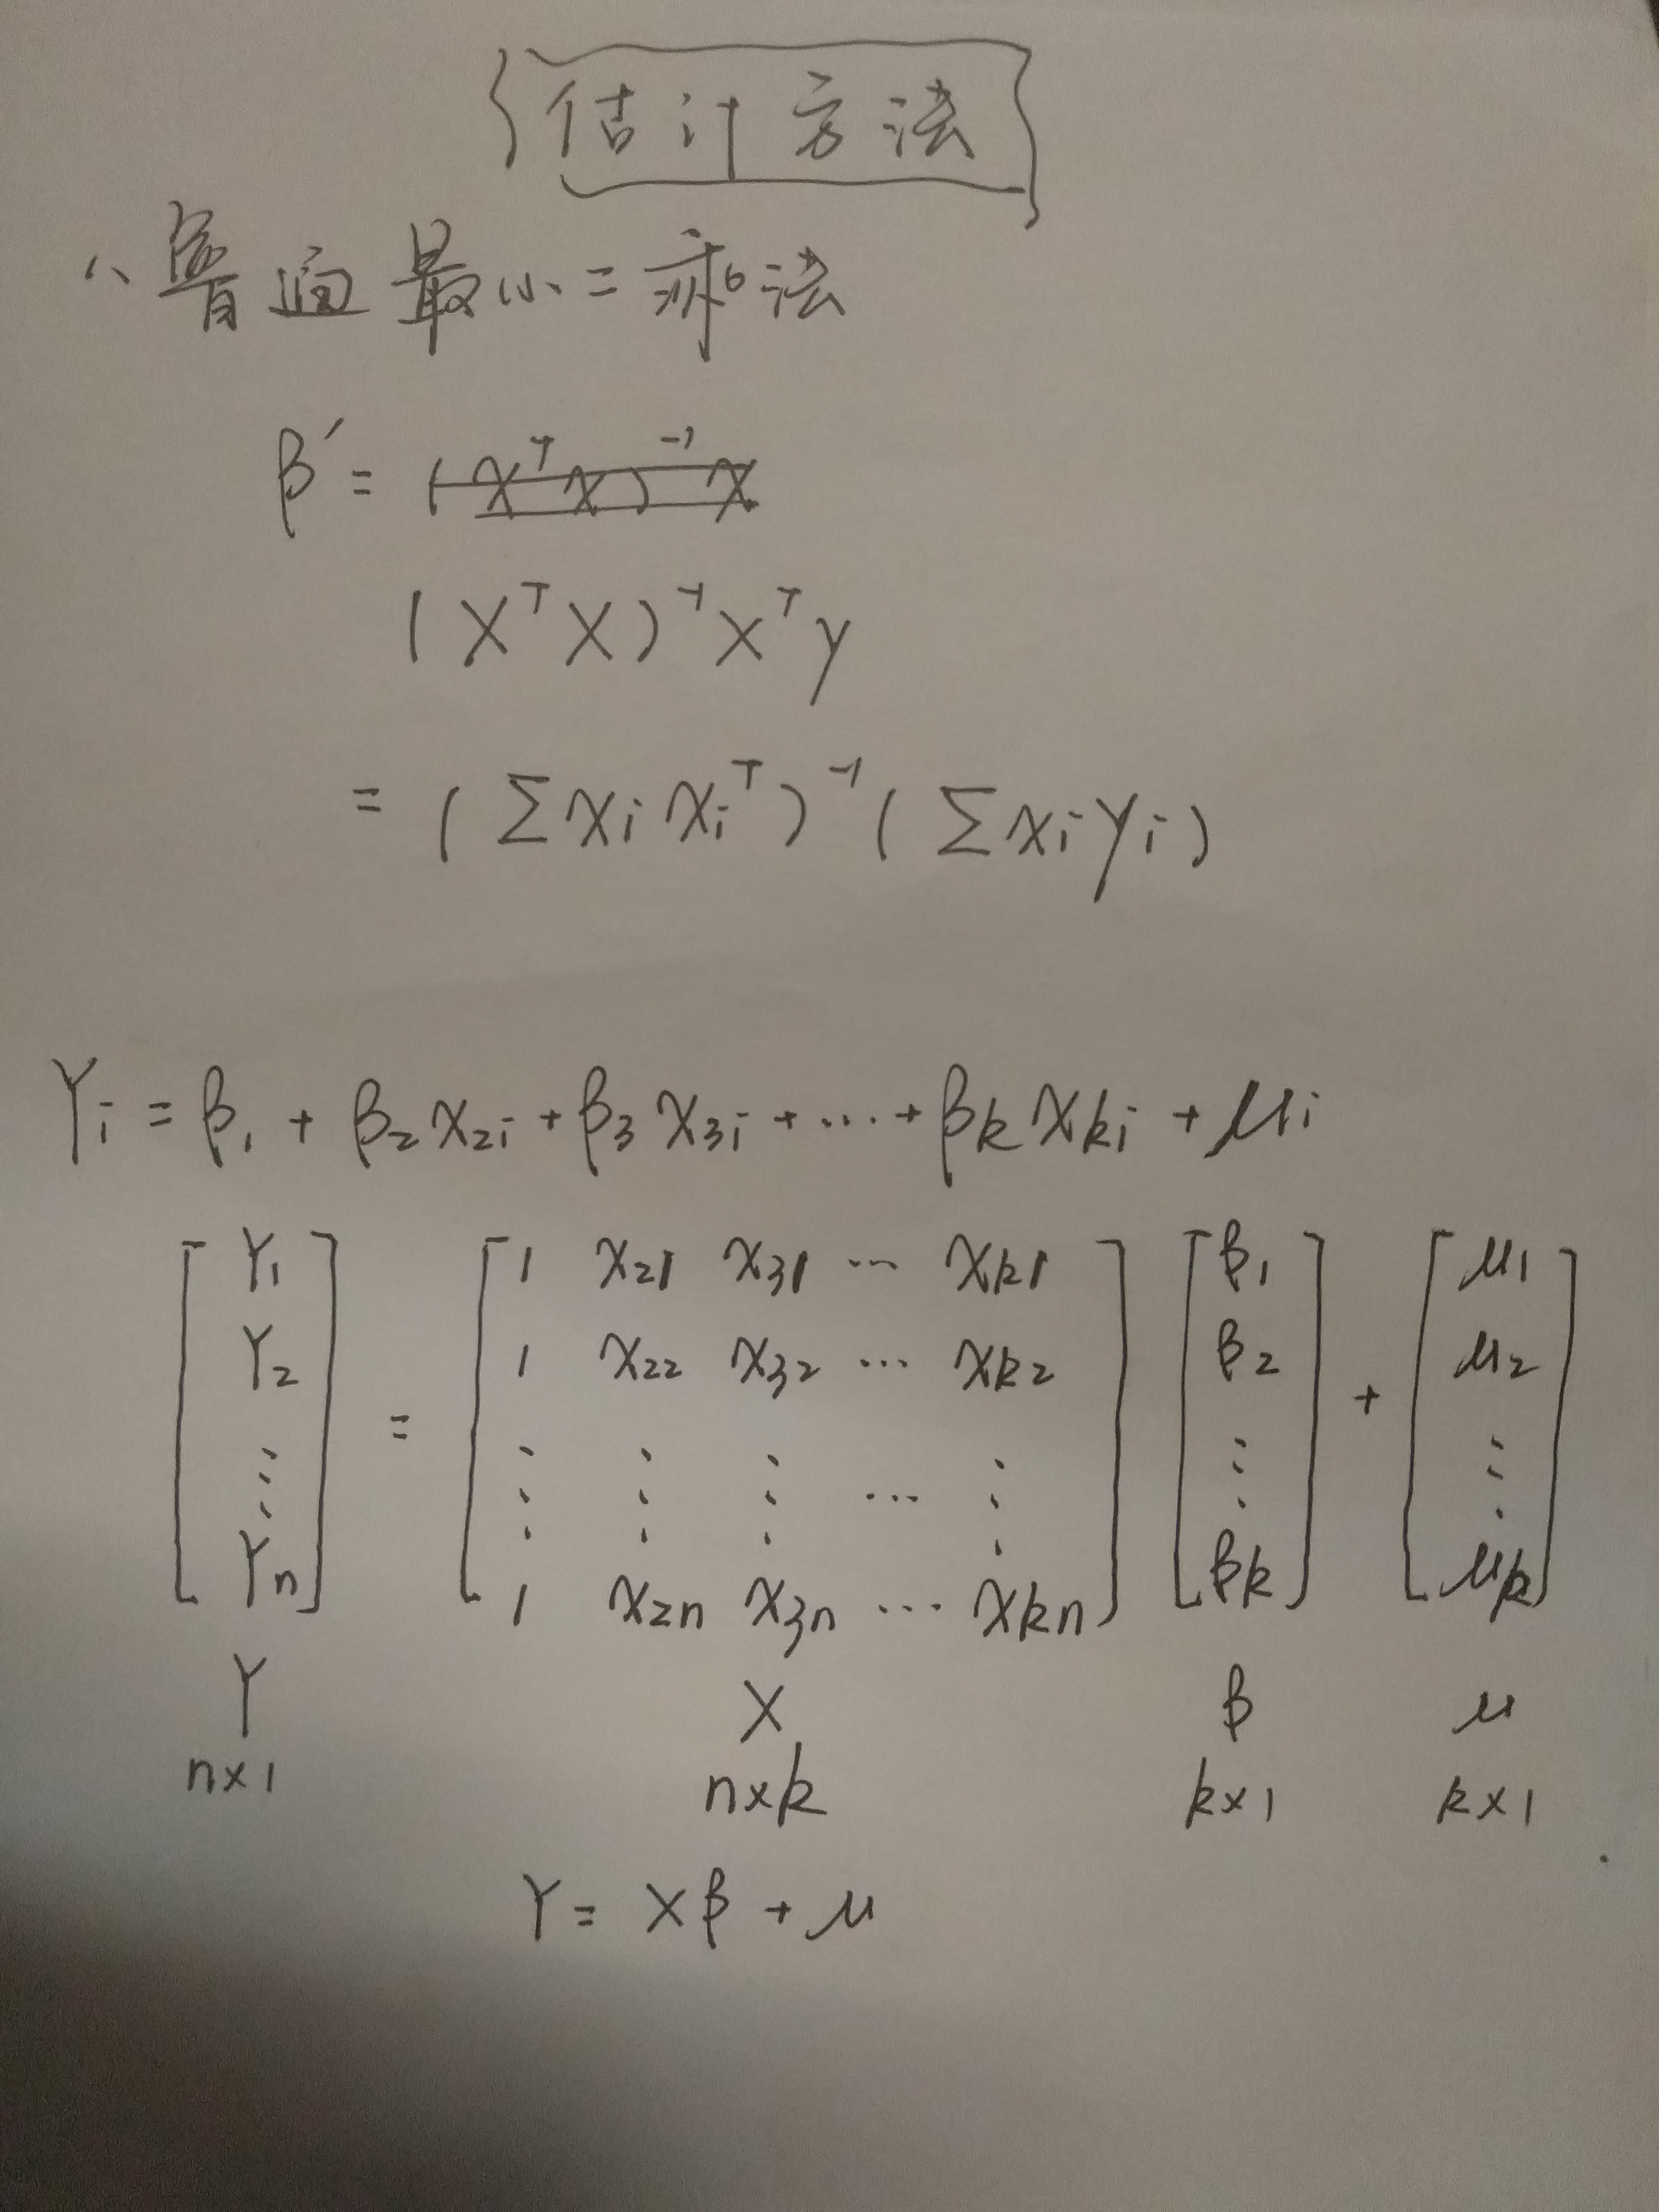 估计方法
1、普通最小二乘法
β′ = (X^T X)^-1 X
(X^T X)^-1 X^T y
= (Σ x_i x_i^T)^-1 (Σ x_i y_i)
Y_i = β_1 + β_2 X_2i + β_3 X_3i + ... + β_k X_ki + μ_i
[Y_1 Y_2 ⋮ Y_n] = [1 X_21 X_31 ... X_k1; 1 X_22 X_32 ... X_k2; ⋮ ⋮ ⋮ ... ⋮; 1 X_2n X_3n ... X_kn] [β_1 β_2 ⋮ β_k] + [μ_1 μ_2 ⋮ μ_k]
Y X β μ
n×1 n×k k×1 k×1
Y = Xβ + μ